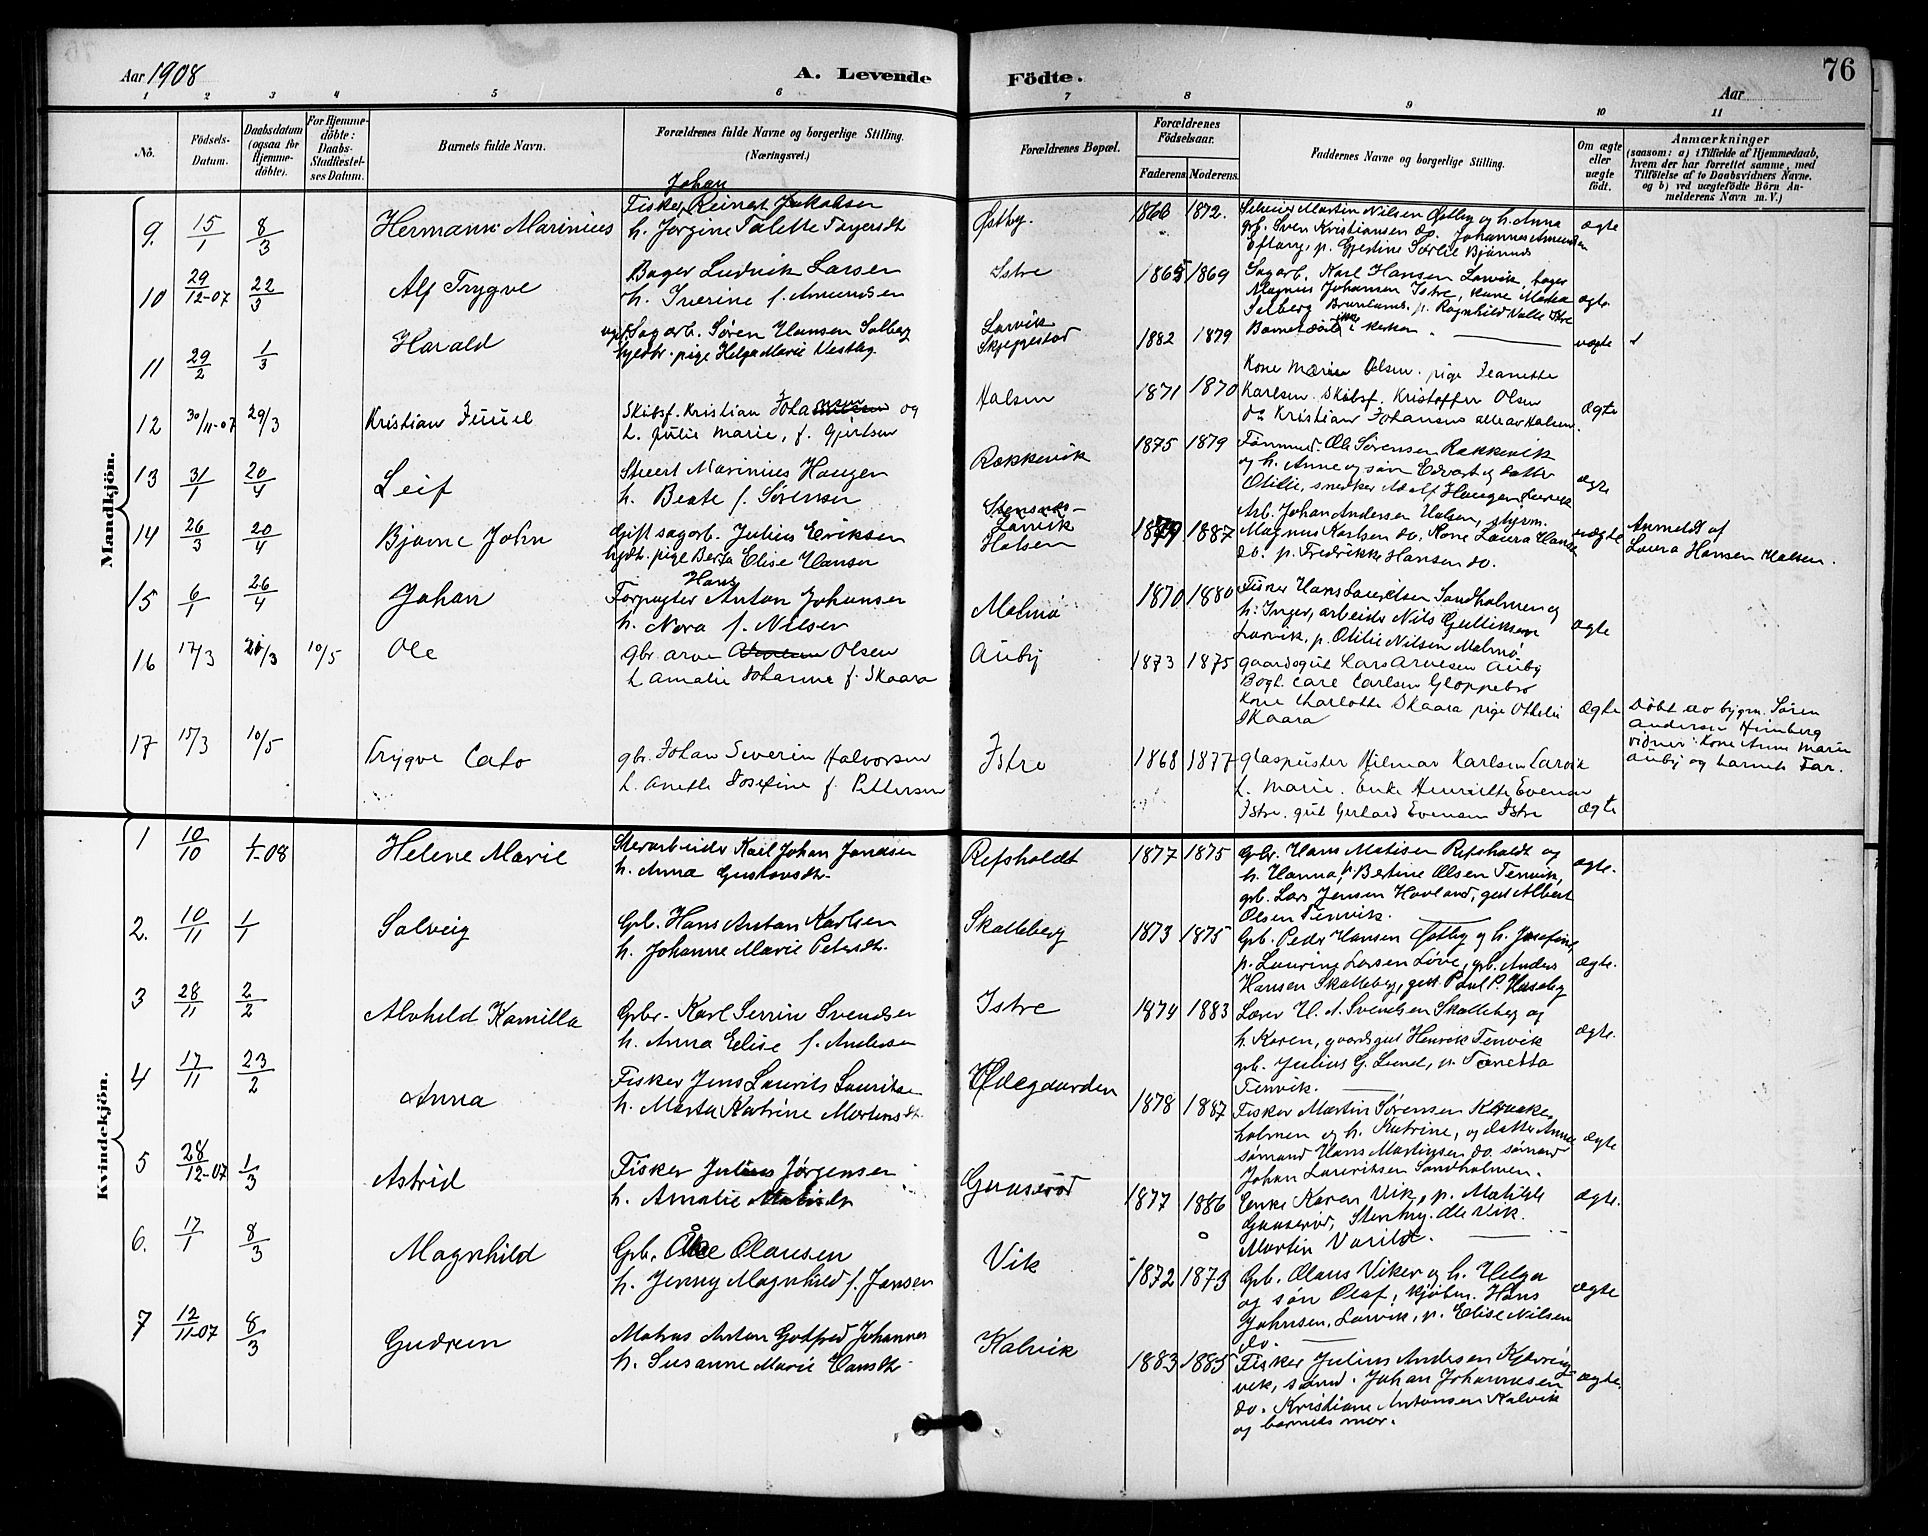 Aar 1908
A. Levende
Födte.
Aar
76
1 2 3 4 5 6 7 8 9 10 11
No.
Födsels-
Datum.
Daabsdatum
(ogsaa for
Hjemme-
döbte).
For Hjemme-
döbte:
Daabs-
Stadfæstel-
ses Datum.
Barnets fulde Navn.
Forældrenes fulde Navne og borgerlige Stilling.
(Næringsvei.)
Forældrenes Bopæl.
Forældrenes
Födselsaar.
Faderens Moderens.
Faddernes Navne og borgerlige Stilling.
Om ægte
eller
uægte
födt.
Anmærkninger
(saasom: a) i Tilfælde af Hjemmedaab,
hvem der har forrettet samme, med
Tilföielse af to Daabsvidners Navne,
og b) ved uægtefödte Börn An-
melderens Navn m. V.)
Mandkjön.
9. 15/1 8/3 Hermann Marinius
Johan
Fisker Reinert Jakobsen
h. Jørgine Talette
Østby. 1866 1872.
Martin Nilsen Østby og h. Anna
gb. Sven Kristiansen do. Johannes Amundsen
ægte
10 29/12-07 22/3 Alf Trygve
Bager Ludvik Larsen
h. Iverine f. Amundsen
Istre 1865 1869
Sagarb. Karl Hansen Larvik, bager
Magnus Johansen Istre, kone
Solberg Brunlanes. p. Ragnhild Valle Istre
ægte
11 29/2 1/3 Harald
ugf. Sagarb. Søren Hansen Solberg
pige Helga Marie Vestby.
Larvik
Skjeggestad 1882 1879
Barnet døbt i kirken.
uægte
12 30/11-07 29/3 Kristian Juuel
Skibsf. Kristian og
h. Julie Marie, f. Gjertsen
Halsen 1871 1870
Kone Marie Olsen. pige Jeanette
Karlsen. Skibsf. Kristoffer Olsen
do Kristian Johansens alle av Halsen.
Ægte
13 31/1 20/4 Leif
Stuert Marinius Haugen
h. Beate f. Sørensen
Rækkevik 1875 1879
Tømmerm. Ole Sørensen Rækkevik
og h. Anne og søn Edvart og datter
Otilie, snedker Adolf Haugen Larvik
ægte
14 26/3 20/4 Bjarne John
Gift sagarb. Julius Eriksen
pige Berta Elise Hansen
Larvik
Halsen 1879 1887
Arb. Johan Andersen Halsen, styrm.
Magnus Karlsen do. Kone Laura Hansen
do. p. Fredrikke Hansen do.
uægte
Anmeldt af
Laura Hansen Halsen.
15 6/1 26/4 Johan
Hans
Forpagter Anton Johansen
h. Nora f. Nilsen
Malmø 1870 1880
Fisker Hans Lauritsen Sandholmen og
h. Inger, arbeider Nils Gulliksen
Larvik, p. Otilie Nilsen Malmø
ægte
16 17/3 21/3 10/5 Ole
gbr. Arve Olsen
h. Amalie Johanne f. Skaara
Auby 1873 1875
gaardsgut Lars Arvesen Auby
Bogh. Carl Carlsen Gloppebro
Kone Charlotte Skaara pige Othelie
Skaara
Ægte
Døbt av bygm. Søren
Andersen Himberg
vidner: Kone Anne Marie
Auby og barnets Far.
17 15/3 10/5 Trygve Cato
gbr. Johan Severin Halvorsen
h. Anette Josefine f. Pettersen
Istre 1868 1877
Glaspuster Hilmar Karlsen Larvik
h. Marie. Enke Henriette Evensen
Istre. gut Gerhard Evensen Istre
ægte
Kvindekjön.
1 10/10 1/1-08 Helene Marie
Stenarbeider Karl Johan Jonassen
h. Anna Gustavsdtr.
Refsholdt 1877 1875
Gbr. Hans Matisen Refsholdt og
h. Hanna, p. Bertine Olsen Tenvik,
gb. Lars Jensen Hovland, gut Albert
Olsen Tenvik.
ægte.
2. 10/11 1/1 Solveig
Gb. Hans Anton Karlsen
h. Johanne Marie Petersdtr.
Skalleberg 1873 1875
Gb. Peder Hansen Østby og h. Josefine,
p. Laurine Larsen Løve, gb. Anders
Hansen Skalleberg, gut Paul P. Huseby
ægte.
3 28/11 2/2 Alvhild Kamilla
Gbr. Karl Serin Svendsen
h. Anna Elise f. Andersen
Istre 1874 1883
Lærer H. A. Svendsen Skalleberg og
h. Karen, gaardsgut Henrik Tenvik
gb. Julius G. Lund, p. Tonetta
Tenvik.
Ægte.
4 17/11 23/2 Anna
Fisker Jens Laurits Lauritsen
h. Marta Katrine Mortensdtr.
Ødegaarden 1878 1887
Fisker Martin Sørensen Kraake-
holmen og h. Katrine, og datter Anna
sømand Hans Martinsen do. sømand
Johan Lauritsen Sandholmen.
ægte
5 28/12-07 1/3 Astrid
Fisker Julius Jørgensen
h. Amalie
Guuserød 1877 1886
Enke Karen Vik, p. Matilde
Guuserød, Stenhug. Ole Vik.
Martin Varild.
ægte.
6. 17/1 8/3 Magnhild
Gb. Olausen
h. Jenny Magnhild f. Jansen
Vik 1872 1873
Gb. Olaus Viker og h. Helga
og søn Olaf, kjøbm. Hans
Johnsen, Larvik, p. Elise Nilsen
do.
ægte
7 12/11-07 8/3 Gudrun
Matros Anton Godfred Johannes
h. Susanne Marie Hansdtr.
Kalvik 1883 1885
Fisker Julius Andersen Kjerring-
vik, sømd. Johan Johannesen
do. Kristiane Antonsen Kalvik
og barnets mor.
ægte.